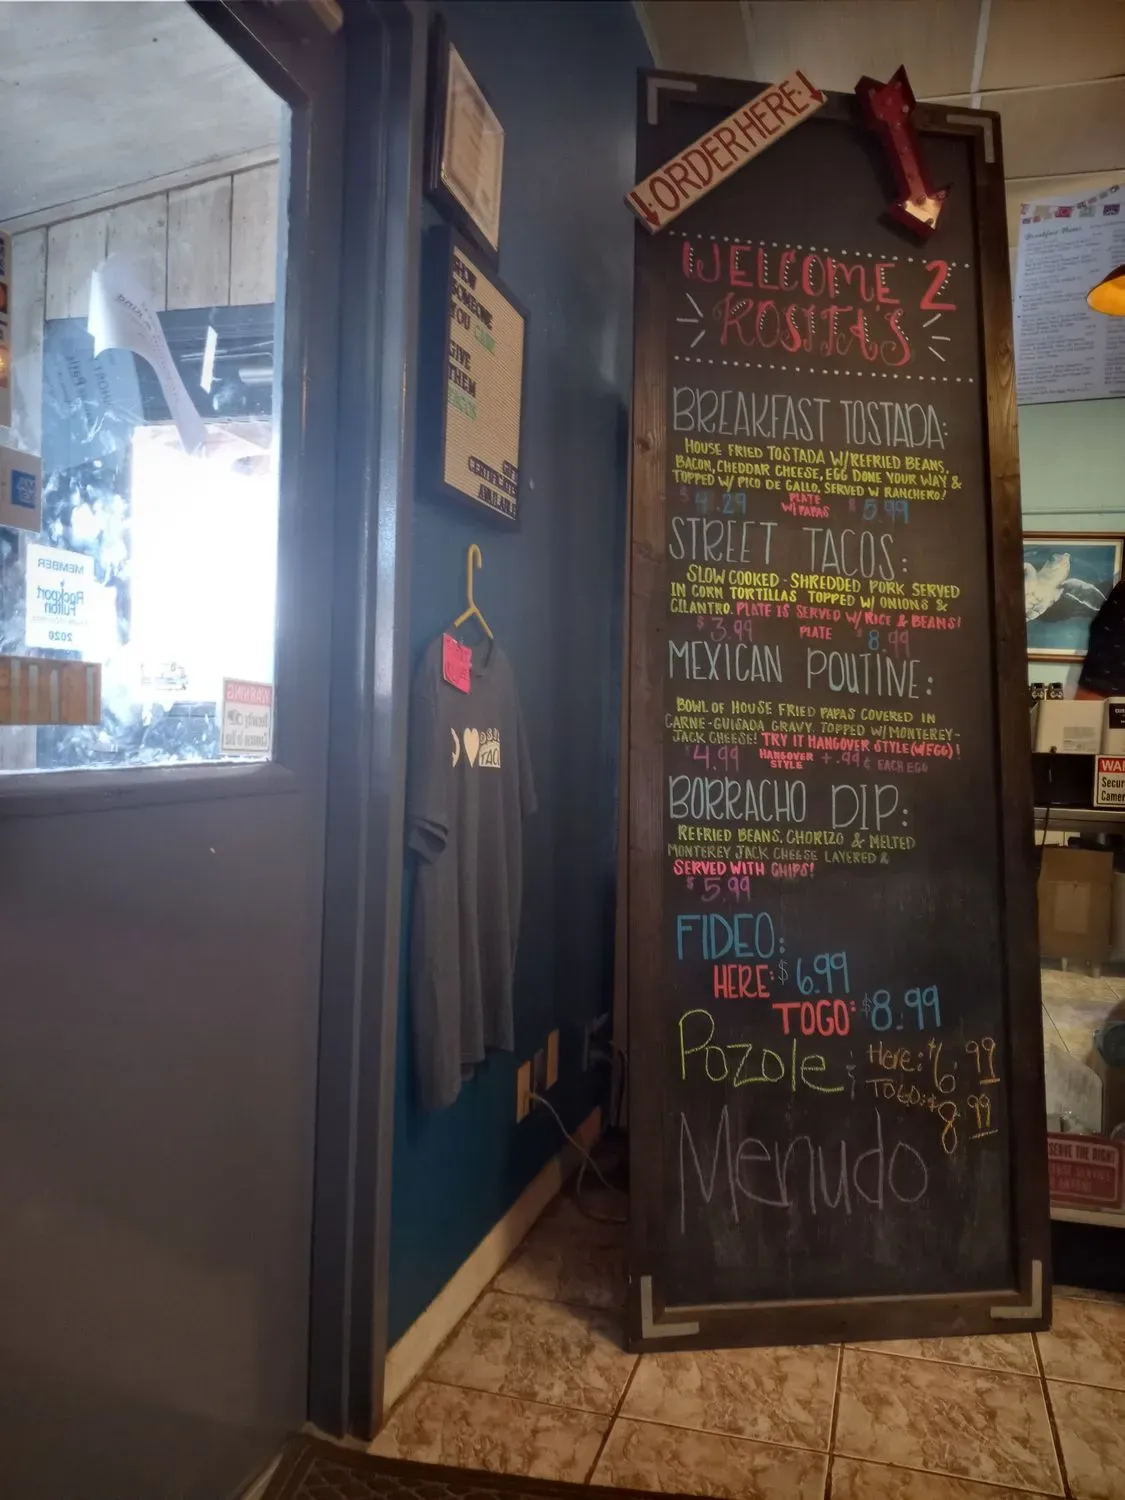 ORDER HERE!
WELCOME 2
ROSITA'S
BREAKFAST TOSTADA:
HOUSE FRIED TOSTADA W/REFRIED BEANS,
BACON, CHEDDAR CHEESE, EGG DONE YOUR WAY &
TOPPED W/ PICO DE GALLO. SERVED W RANCHERO!
$4.29 PLATE W/PAPAS $5.99
STREET TACOS:
SLOW COOKED - SHREDDED PORK SERVED
IN CORN TORTILLAS TOPPED W/ ONIONS &
CILANTRO. PLATE IS SERVED W/RICE & BEANS!
$3.99 PLATE $8.99
MEXICAN POUTINE:
BOWL OF HOUSE FRIED PAPAS COVERED IN
CARNE-GUISADA GRAVY, TOPPED W/MONTEREY-
JACK CHEESE! TRY IT HANGOVER STYLE(W/EGG)!
$4.99 HANGOVER STYLE + .99¢ EACH EGG
BORRACHO DIP:
REFRIED BEANS, CHORIZO & MELTED
MONTEREY JACK CHEESE LAYERED &
SERVED WITH CHIPS!
$5.99
FIDEO:
HERE: $6.99
TOGO: $8.99
Pozole: Here: $6.99
TOGO: $8.99
Menudo
SHOW
SOMEONE
YOU CARE
GIVE
THEM
GIFT
CERTIFICATES
AVAILABLE
MEMBER
Rockport
Fulton
2020
WARNING
Breakfast Menu
WAR
Secur
Camer
SERVE THE RIGHT